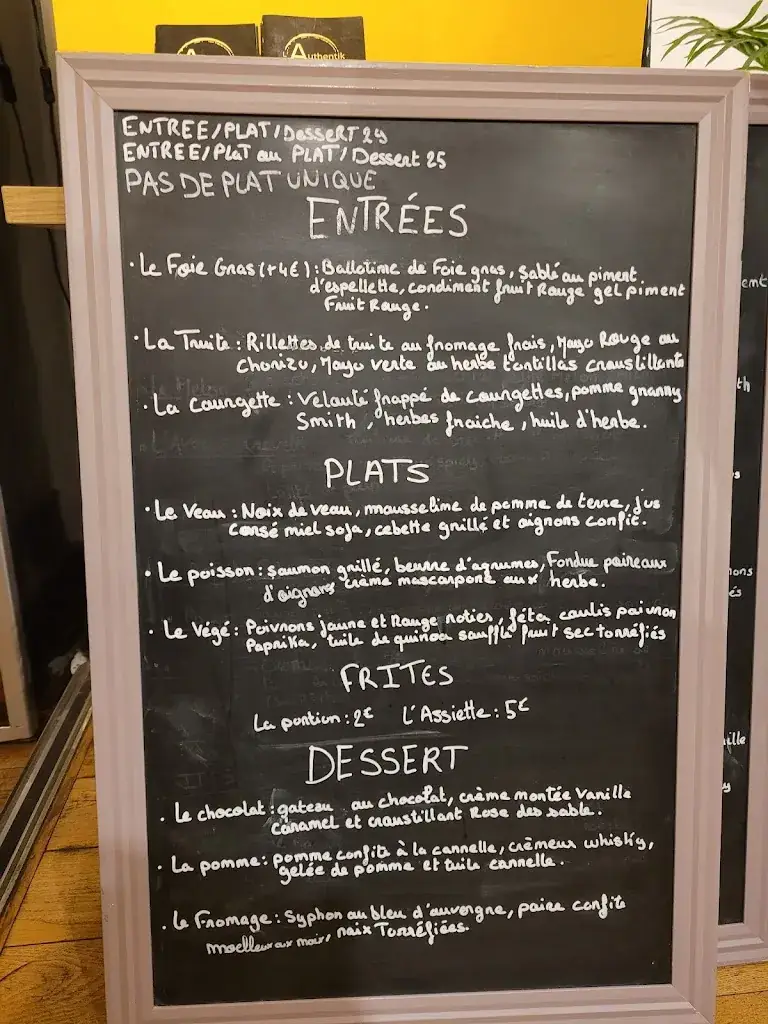 Authentik
ENTREE/PLAT/DesseRT 29
ENTREE/Plat ou PLAT/Dessert 25
PAS DE PLAT UNIQUE
ENTRÉES
· Le Foie Gras (+4€) : Ballotine de Foie gras, Sablé au piment
d'espellette, condiment fruit Rouge gel piment
Fruit Rouge.
· La Truite : Rillettes de truite au fromage frais, Mayo Rouge au
chorizo, Mayo verte au herbe tortillas croustillante
· La courgette : Velouté frappé de courgettes, pomme granny
Smith, herbes fraiche, huile d'herbe.
PLATS
· Le Veau : Noix de veau, mousseline de pomme de terre, jus
corsé miel soja, cebette grillé et oignons confit.
· Le poisson : saumon grillé, beurre d'agrumes, Fondue poireaux
d'oignons crème mascarpone aux herbe.
· Le Végé : Poivrons jaune et Rouge roties, féta, coulis poivron
Paprika, tuile de quinoa soufflé fruit sec torréfiés
FRITES
La portion : 2€ L'Assiette : 5€
DESSERT
· Le chocolat : gateau au chocolat, crème montée Vanille
caramel et croustillant Rose des sable.
· La pomme : pomme confite à la cannelle, crèmeux whisky,
gelée de pomme et tuile cannelle.
· Le Fromage : Syphon au bleu d'auvergne, poire confite
moelleux aux noix, noix Torréfiées.